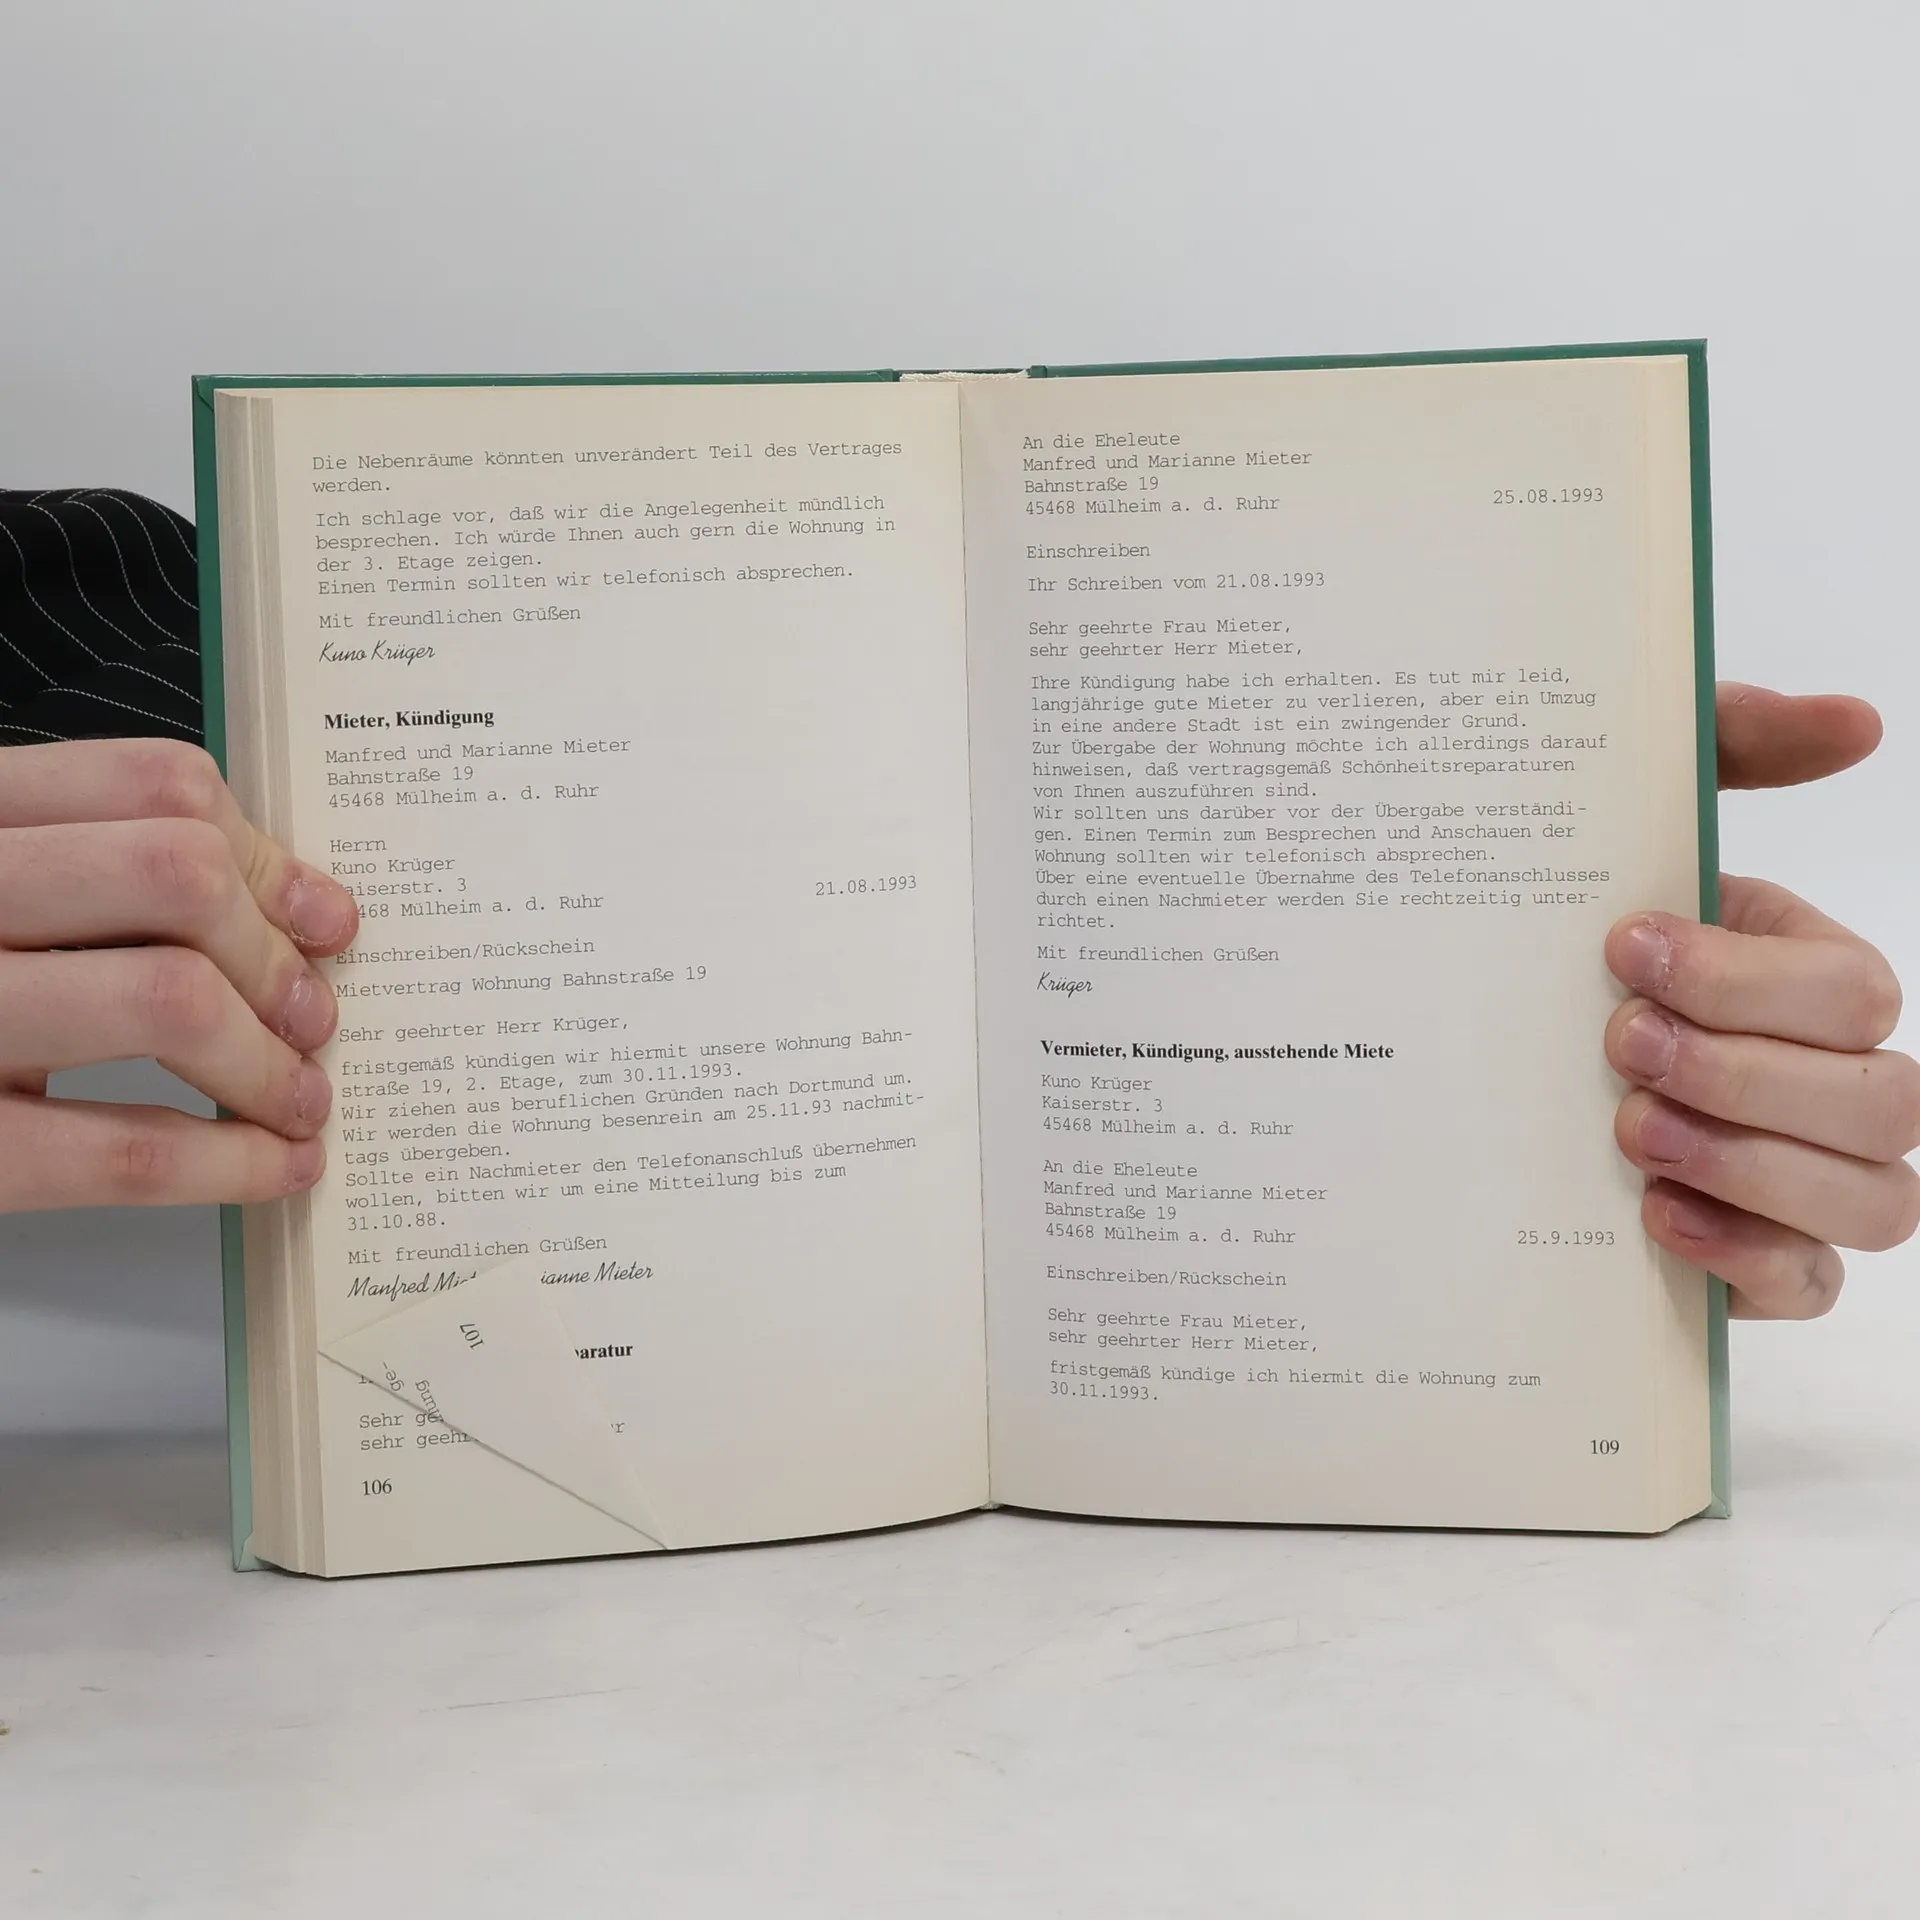 Die Nebenräume könnten unverändert Teil des Vertrages
werden.
Ich schlage vor, daß wir die Angelegenheit mündlich
besprechen. Ich würde Ihnen auch gern die Wohnung in
der 3. Etage zeigen.
Einen Termin sollten wir telefonisch absprechen.
Mit freundlichen Grüßen
Kuno Krüger
Mieter, Kündigung
Manfred und Marianne Mieter
Bahnstraße 19
45468 Mülheim a. d. Ruhr
Herrn
Kuno Krüger
aiserstr. 3
468 Mülheim a. d. Ruhr 21.08.1993
Einschreiben/Rückschein
Mietvertrag Wohnung Bahnstraße 19
Sehr geehrter Herr Krüger,
fristgemäß kündigen wir hiermit unsere Wohnung Bahn-
straße 19, 2. Etage, zum 30.11.1993.
Wir ziehen aus beruflichen Gründen nach Dortmund um.
Wir werden die Wohnung besenrein am 25.11.93 nachmit-
tags übergeben.
Sollte ein Nachmieter den Telefonanschluß übernehmen
wollen, bitten wir um eine Mitteilung bis zum
31.10.88.
Mit freundlichen Grüßen
Manfred Mi ianne Mieter
107
aratur
ge-
dung
Sehr ge
sehr geeh r
106
An die Eheleute
Manfred und Marianne Mieter
Bahnstraße 19
45468 Mülheim a. d. Ruhr 25.08.1993
Einschreiben
Ihr Schreiben vom 21.08.1993
Sehr geehrte Frau Mieter,
sehr geehrter Herr Mieter,
Ihre Kündigung habe ich erhalten. Es tut mir leid,
langjährige gute Mieter zu verlieren, aber ein Umzug
in eine andere Stadt ist ein zwingender Grund.
Zur Übergabe der Wohnung möchte ich allerdings darauf
hinweisen, daß vertragsgemäß Schönheitsreparaturen
von Ihnen auszuführen sind.
Wir sollten uns darüber vor der Übergabe verständi-
gen. Einen Termin zum Besprechen und Anschauen der
Wohnung sollten wir telefonisch absprechen.
Über eine eventuelle Übernahme des Telefonanschlusses
durch einen Nachmieter werden Sie rechtzeitig unter-
richtet.
Mit freundlichen Grüßen
Krüger
Vermieter, Kündigung, ausstehende Miete
Kuno Krüger
Kaiserstr. 3
45468 Mülheim a. d. Ruhr
An die Eheleute
Manfred und Marianne Mieter
Bahnstraße 19
45468 Mülheim a. d. Ruhr 25.9.1993
Einschreiben/Rückschein
Sehr geehrte Frau Mieter,
sehr geehrter Herr Mieter,
fristgemäß kündige ich hiermit die Wohnung zum
30.11.1993.
109